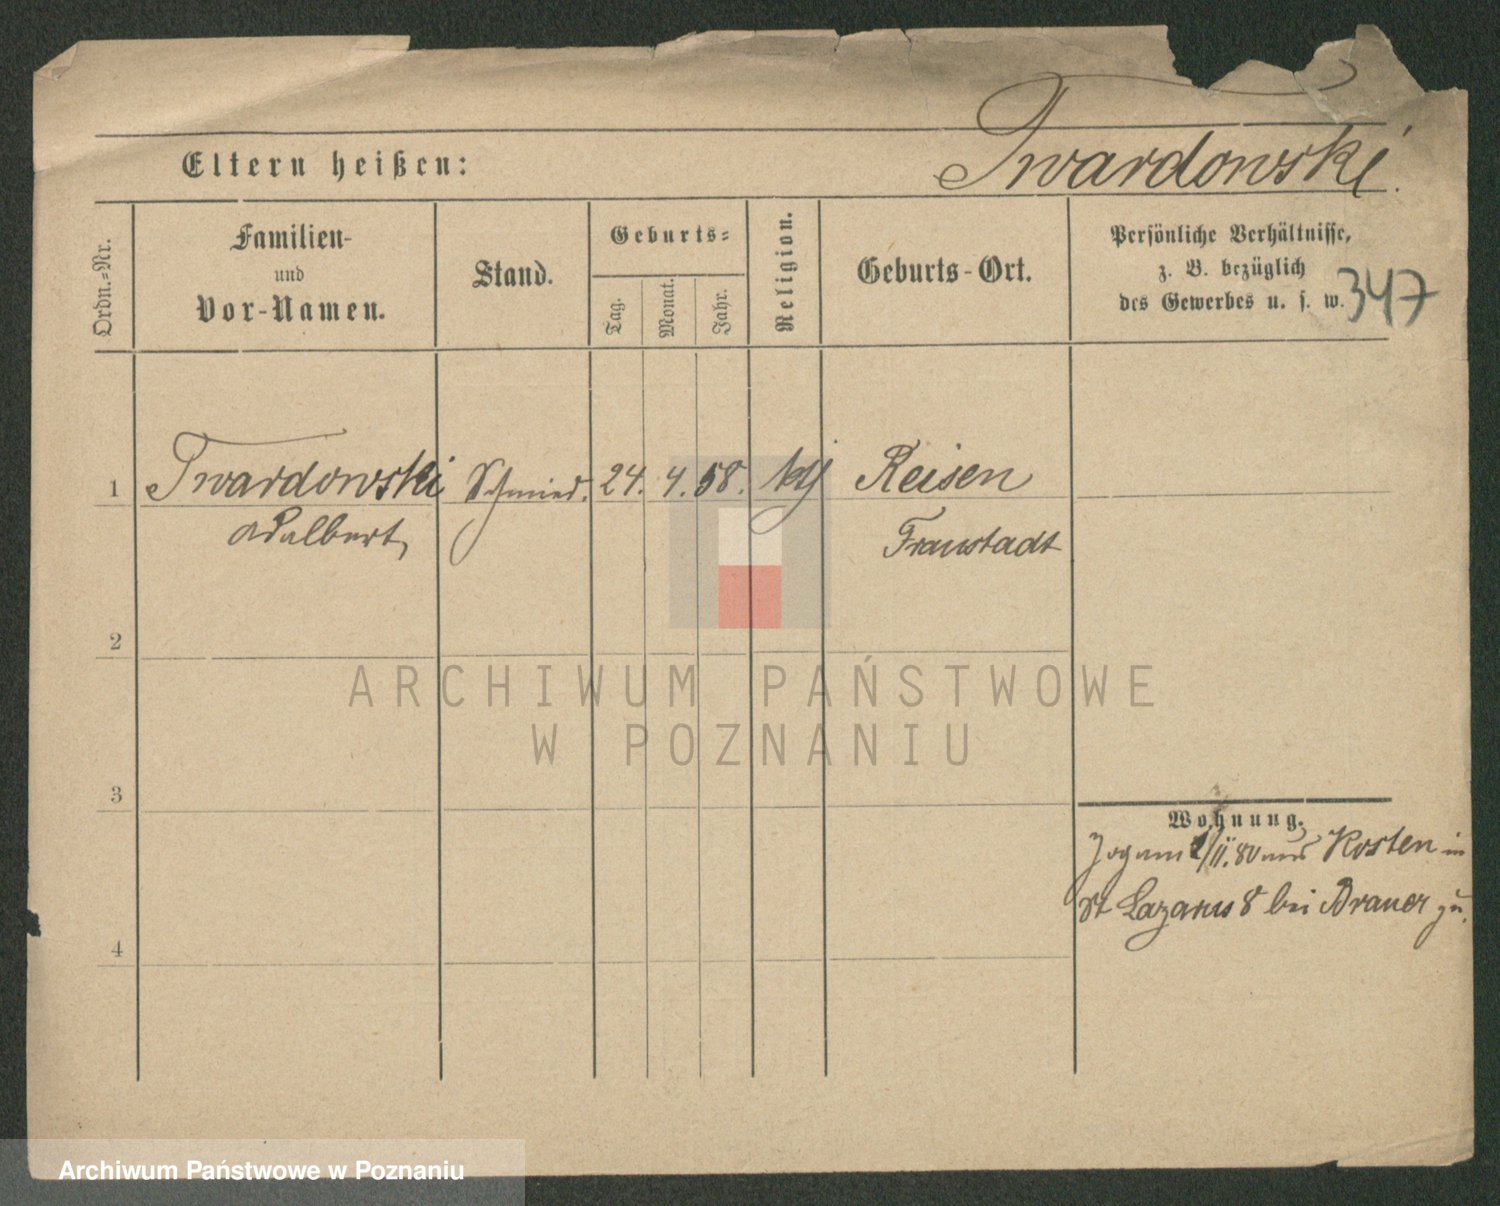 Twardowski.
Eltern heißen:
Ordn.-Nr.
Familien-
und
Vor-Namen.
Stand.
Geburts-
Tag.
Monat.
Jahr.
Religion.
Geburts-Ort.
Persönliche Verhältnisse,
z. B. bezüglich
des Gewerbes u. s. w.
347
1 Twardowski Schmied. 24. 4. 58. Reisen
Adalbert, Fraustadt
2
ARCHIWUM PAŃSTWOWE
W POZNANIU
3
Wohnung.
Zog am /11.80 aus Kosten in
St Lazarus 8 bei Brauer zu.
4
Archiwum Państwowe w Poznaniu